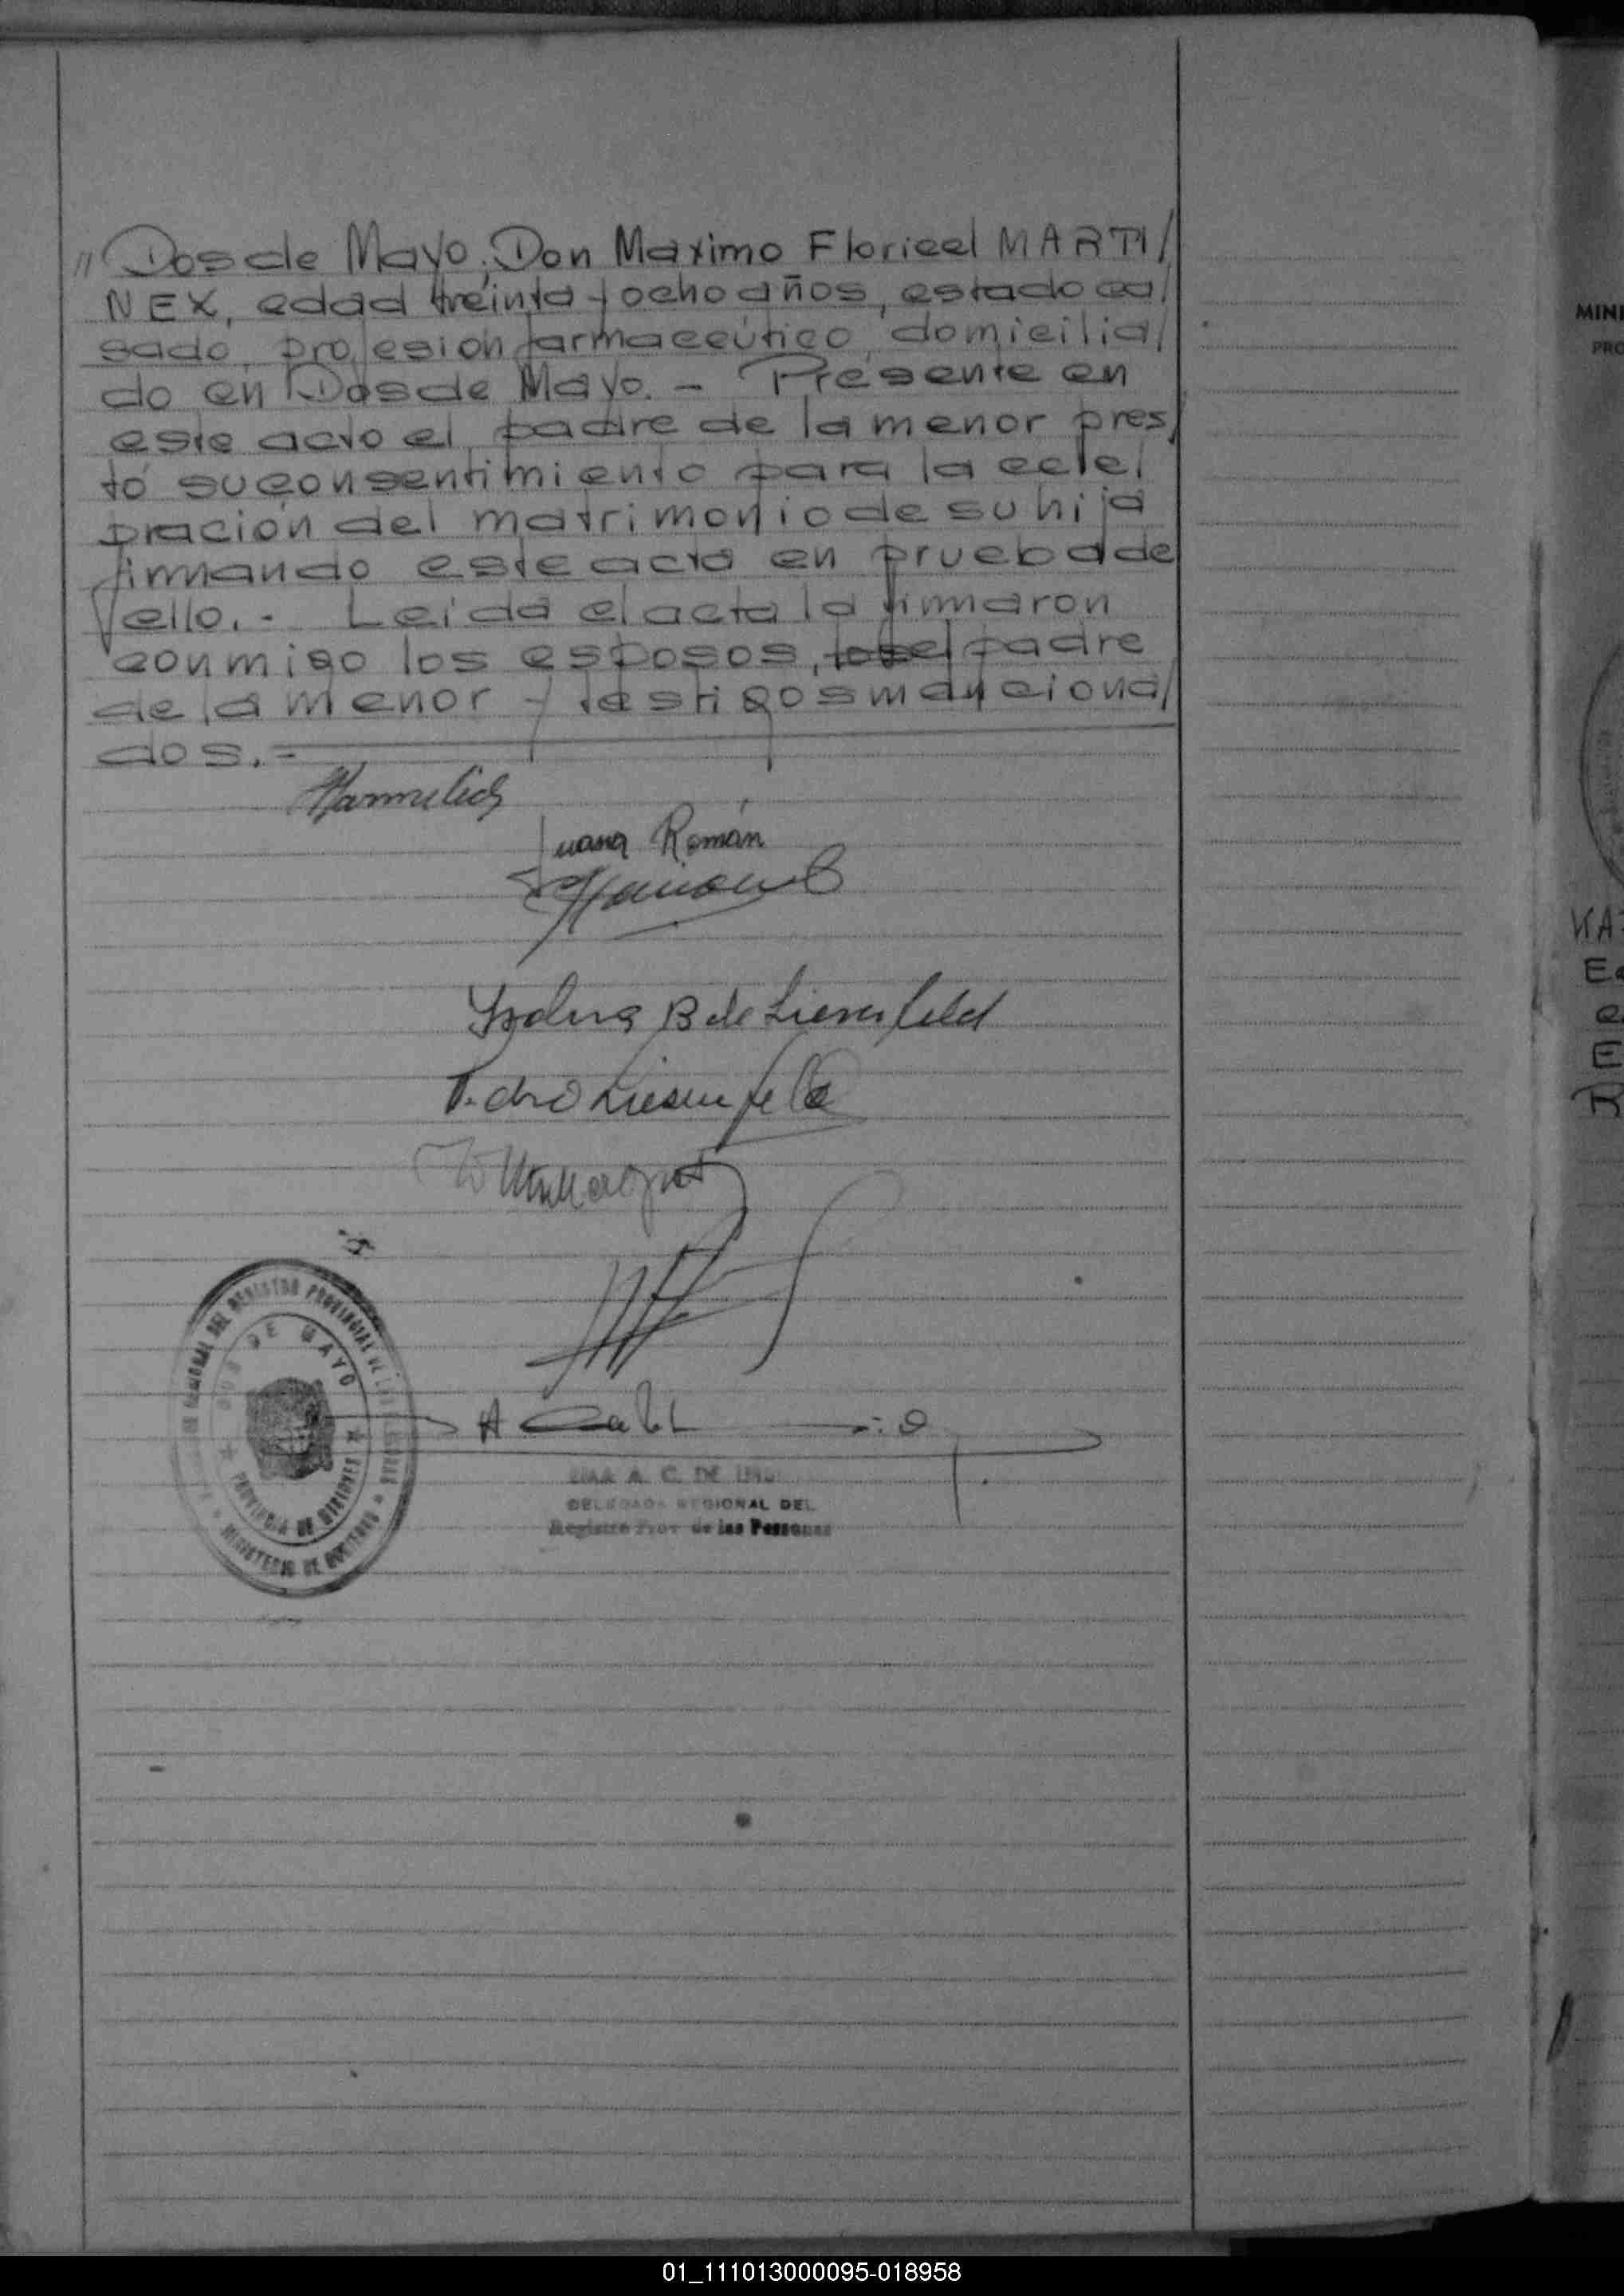 // Dos de Mayo; Don Maximo Floricel MARTI/
NEX, edad treinta y ocho años, estado ca/
sado, profesión farmaceútico, domicilia/
do en Dos de Mayo. - Presente en
este acto el padre de la menor pres/
tó su consentimiento para la cele/
bración del matrimonio de su hija
firmando este acta en prueba de
ello. - Leída el acta la firmaron
conmigo los esposos, el padre
de la menor y testigos menciona/
dos. -
Juana Román
B de Liesenfeld
Pedro Liesenfeld
REGIONAL DEL REGISTRO PROVINCIAL DE LAS PERSONAS
DOS DE MAYO
PROVINCIA DE MISIONES
MINISTERIO DE GOBIERNO
A. C. DE
DELEGADA REGIONAL DEL
Registro Prov de las Personas
MINI
PRO
E
R
01_111013000095-018958